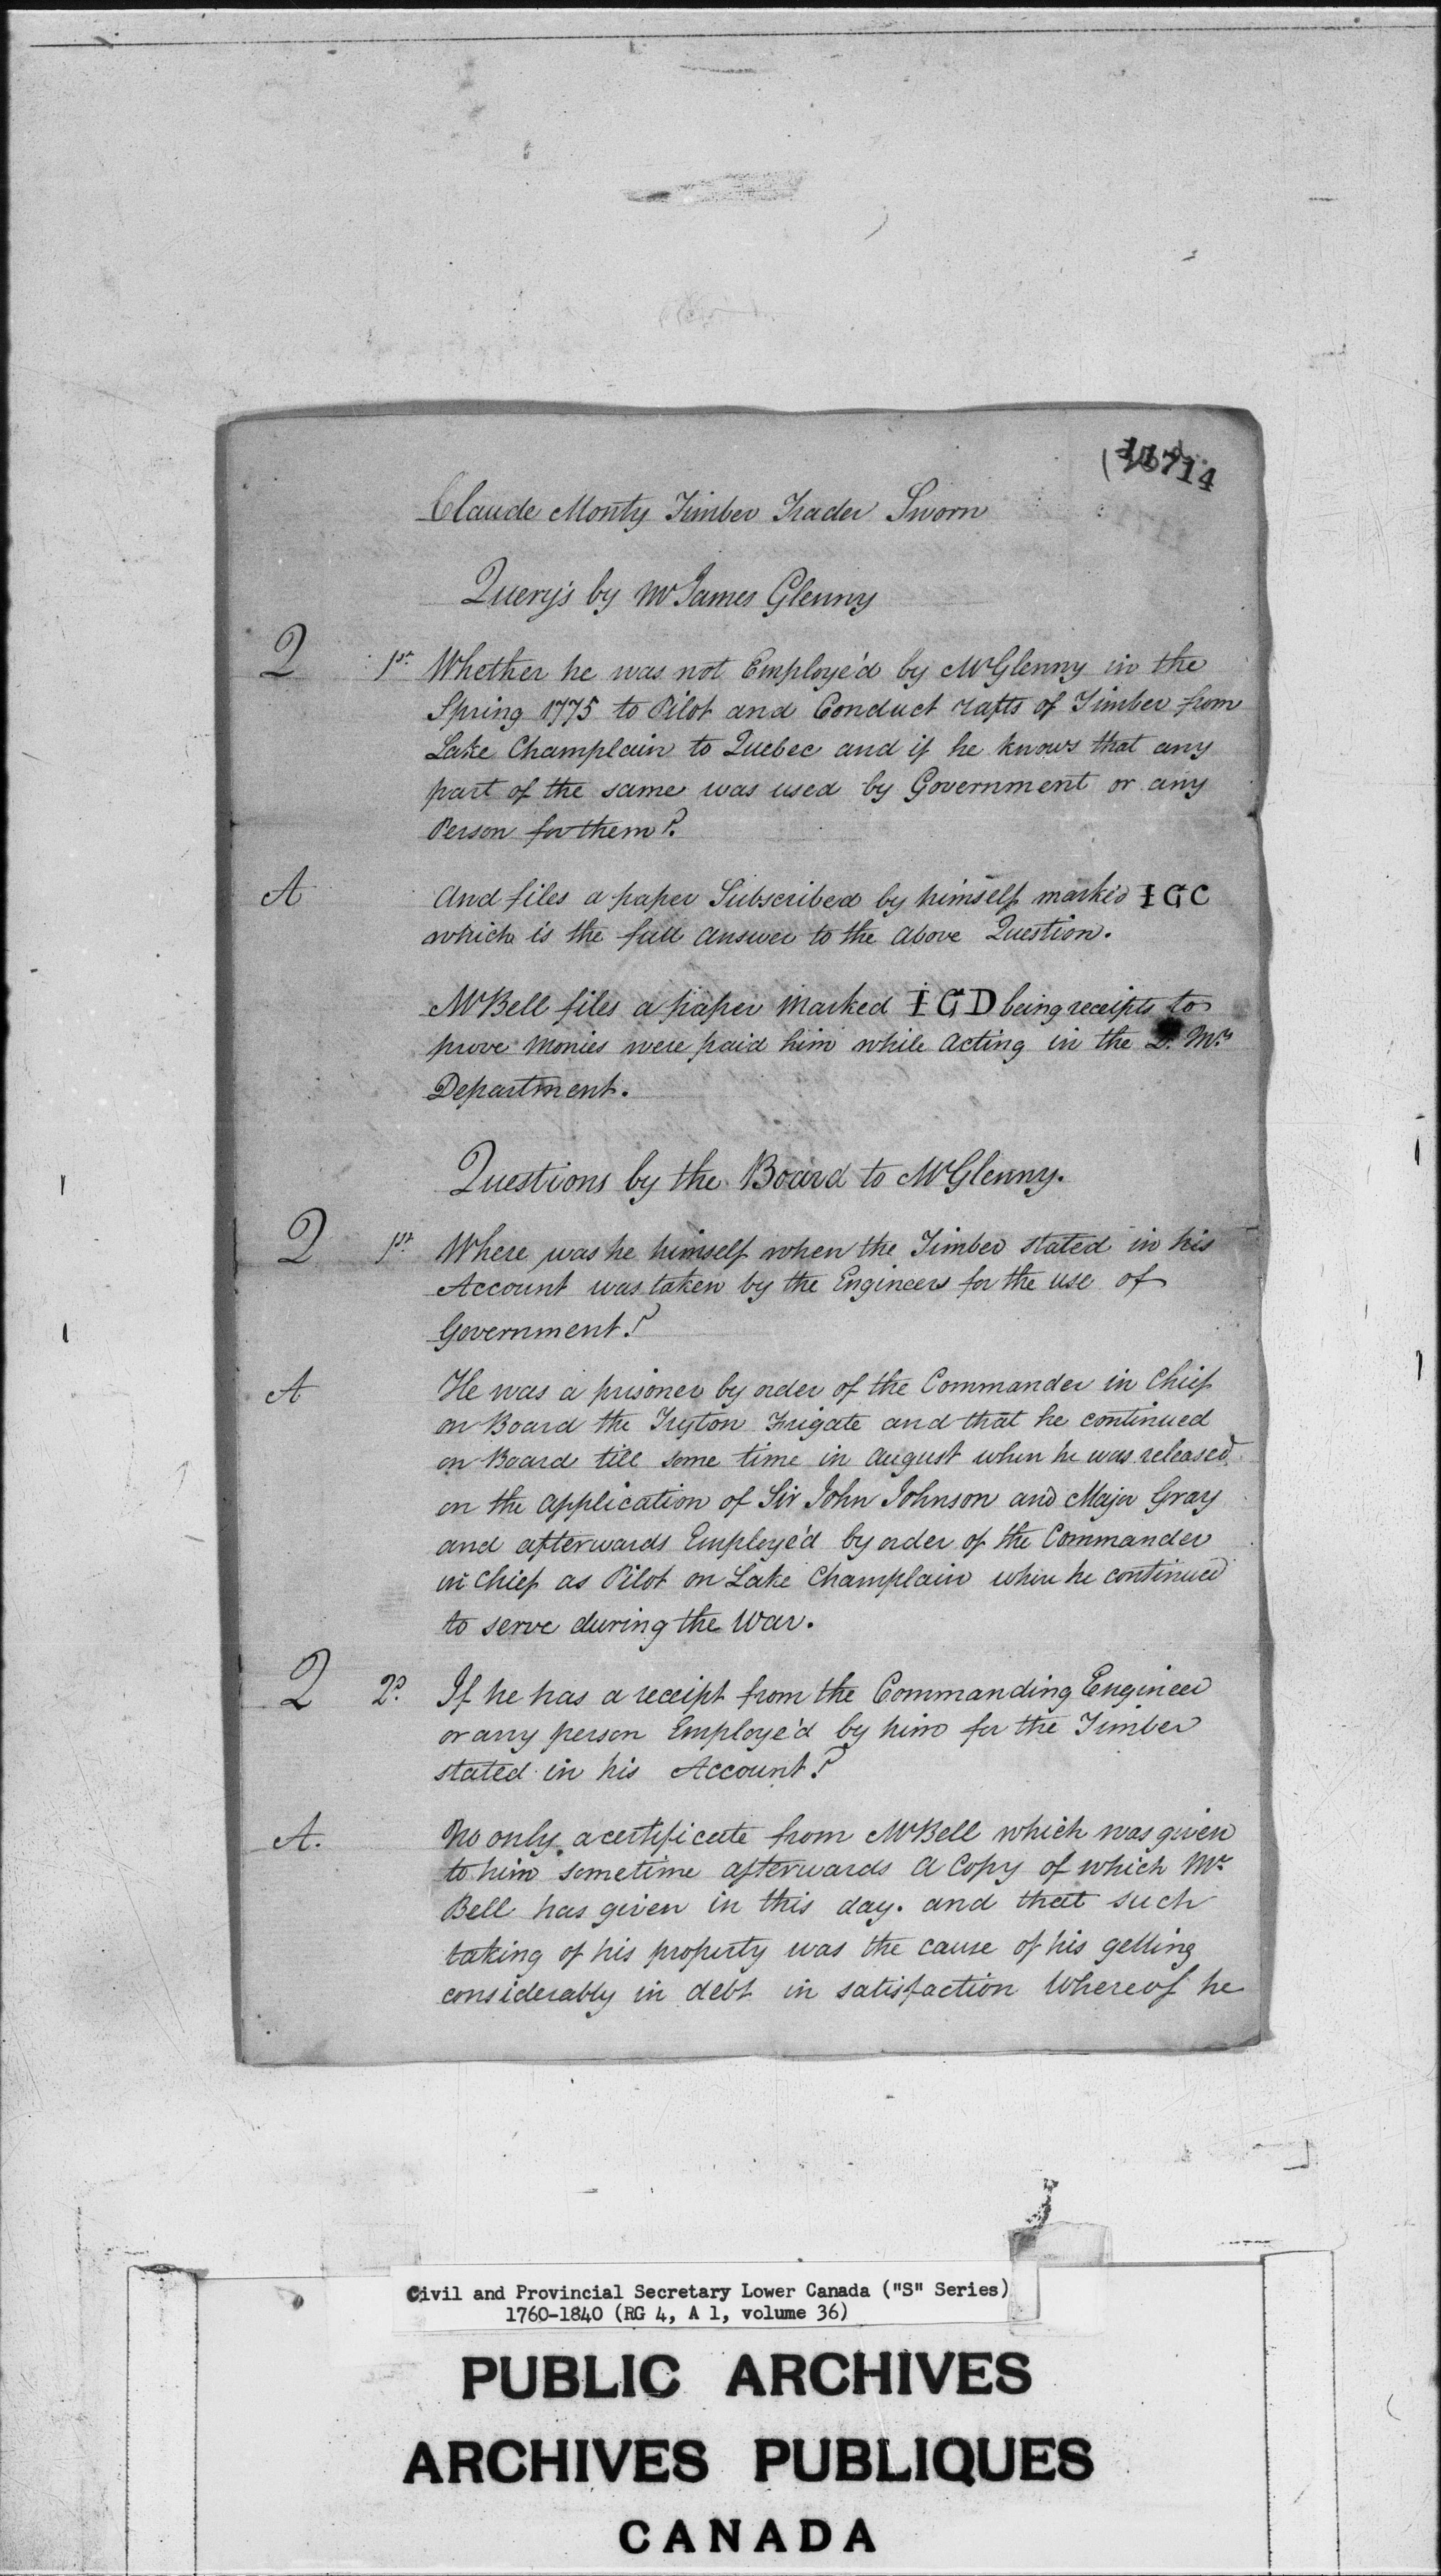 11714
Claude Monty Timber Trader Sworn
Query's by Mr James Glenny
Q 1st. Whether he was not Employe'd by Mr Glenny in the
Spring 1775 to Pilot and Conduct rafts of Timber from
Lake Champlain to Quebec and if he knows that any
part of the same was used by Government or any
Person for them?
A And files a paper Subscribed by himself mark'd I G C
which is the full answer to the above Question.
Mr Bell files a paper marked I G D being receipts to
prove Monies were paid him while Acting in the Mrs
Department.
Questions by the Board to Mr Glenny.
Q 1st. Where was he himself when the Timber stated in his
Account was taken by the Engineers for the use of
Government?
A He was a prisoner by order of the Commander in Chief
on Board the Tryton Frigate and that he continued
on Board till some time in August when he was released
on the application of Sir John Johnson and Major Gray
and afterwards Employe'd by order of the Commander
in Chief as Pilot on Lake Champlain where he continued
to serve during the War.
Q 2d. If he has a receipt from the Commanding Engineer
or any person Employe'd by him for the Timber
stated in his Account?
A. No only a certificate from Mr Bell which was given
to him sometime afterwards a Copy of which Mr
Bell has given in this day. and that such
taking of his property was the cause of his getting
considerably in debt in satisfaction Whereof he
Civil and Provincial Secretary Lower Canada ("S" Series)
1760-1840 (RG 4, A 1, volume 36)
PUBLIC ARCHIVES
ARCHIVES PUBLIQUES
CANADA